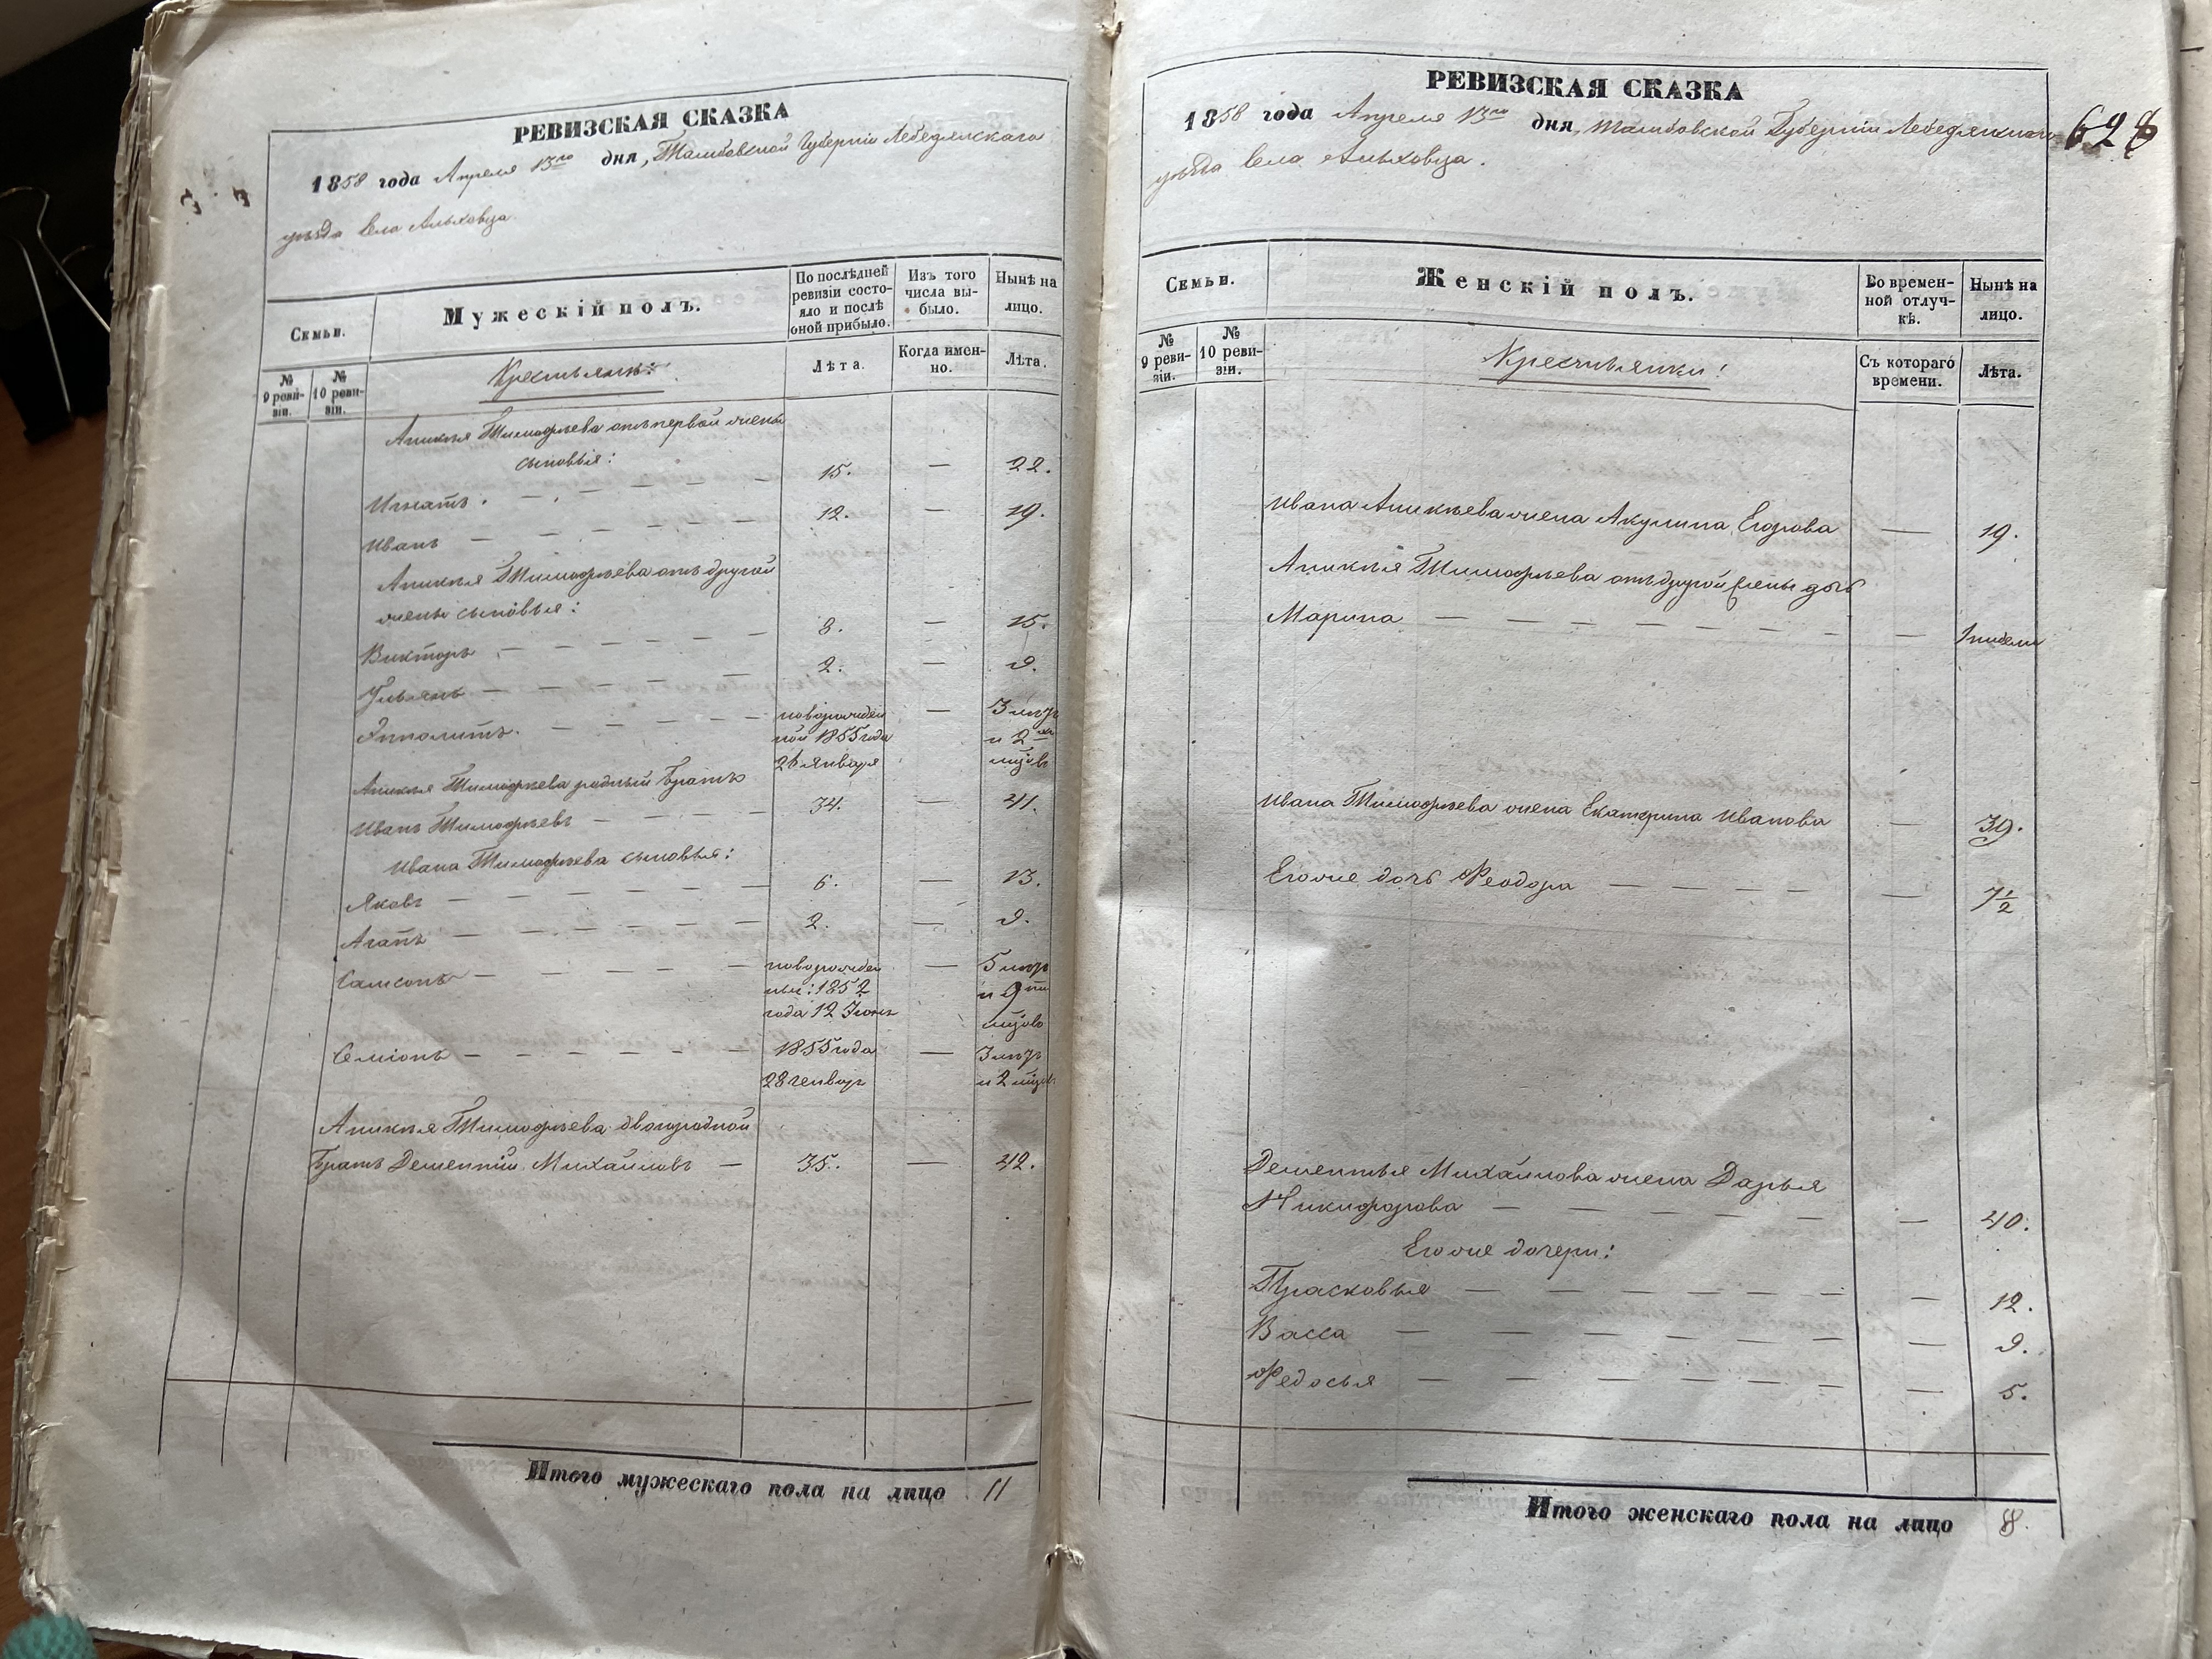 РЕВИЗСКАЯ СКАЗКА
1858 года Апреля 13го дня, Тамбовской Губерніи Лебедянскаго
уѣзда Села Ольховца
Семьи.
Мужескій полъ.
По послѣдней ревизіи состояло и послѣ оной прибыло.
Изъ того числа выбыло.
Нынѣ на лицо.
№ 9 ревизіи.
№ 10 ревизіи.
Крестьянѣ:
Лѣта.
Когда именно.
Лѣта.
Аникѣя Тимофѣева отъ первой жены
сыновья:
Игнатъ. — 15. — 22.
Иванъ — 12. — 19.
Аникѣя Тимофѣева отъ другой
жены сыновья:
Викторъ — 8. — 15.
Ульянъ — 2. — 9.
Ипполитъ. — новорожден — 3 лѣтъ
ной 1855 года и 2хъ
26 января мцовъ
Аникѣя Тимофѣева родный братъ
Иванъ Тимофѣевъ — 34. — 41.
Ивана Тимофѣева сыновья:
Яковъ — 6. — 13.
Агапъ — 2. — 9.
Самсонъ — новорожден — 5 лѣтъ
ные: 1852 и 9ти
года 12 Іюня мцовъ
Семіонъ — 1855 года — 3 лѣтъ
28 генвар и 2 мцов
Аникѣя Тимофѣева двоюродной
братъ Дементій Михайловъ — 35. — 42.
Итого мужескаго пола на лицо 11
РЕВИЗСКАЯ СКАЗКА
1858 года Апреля 13го дня, Тамбовской Губерніи Лебедянскаго
628
уѣзда Села Ольховца.
Семьи.
Женскій полъ.
Во временной отлучкѣ.
Нынѣ на лицо.
№ 9 ревизіи.
№ 10 ревизіи.
Крестьянки:
Съ котораго времени.
Лѣта.
Ивана Аникѣева жена Акулина Егорова — 19.
Аникѣя Тимофѣева отъ другой жены дочь
Марина — 1 недели
Ивана Тимофѣева жена Екатерина Иванова — 39.
Его же дочь Феодора — 7 1/2
Дементья Михайлова жена Дарья
Никифорова — 40.
Его же дочери:
Прасковья — 12.
Васса — 9.
Федосья — 5.
Итого женскаго пола на лицо 8.